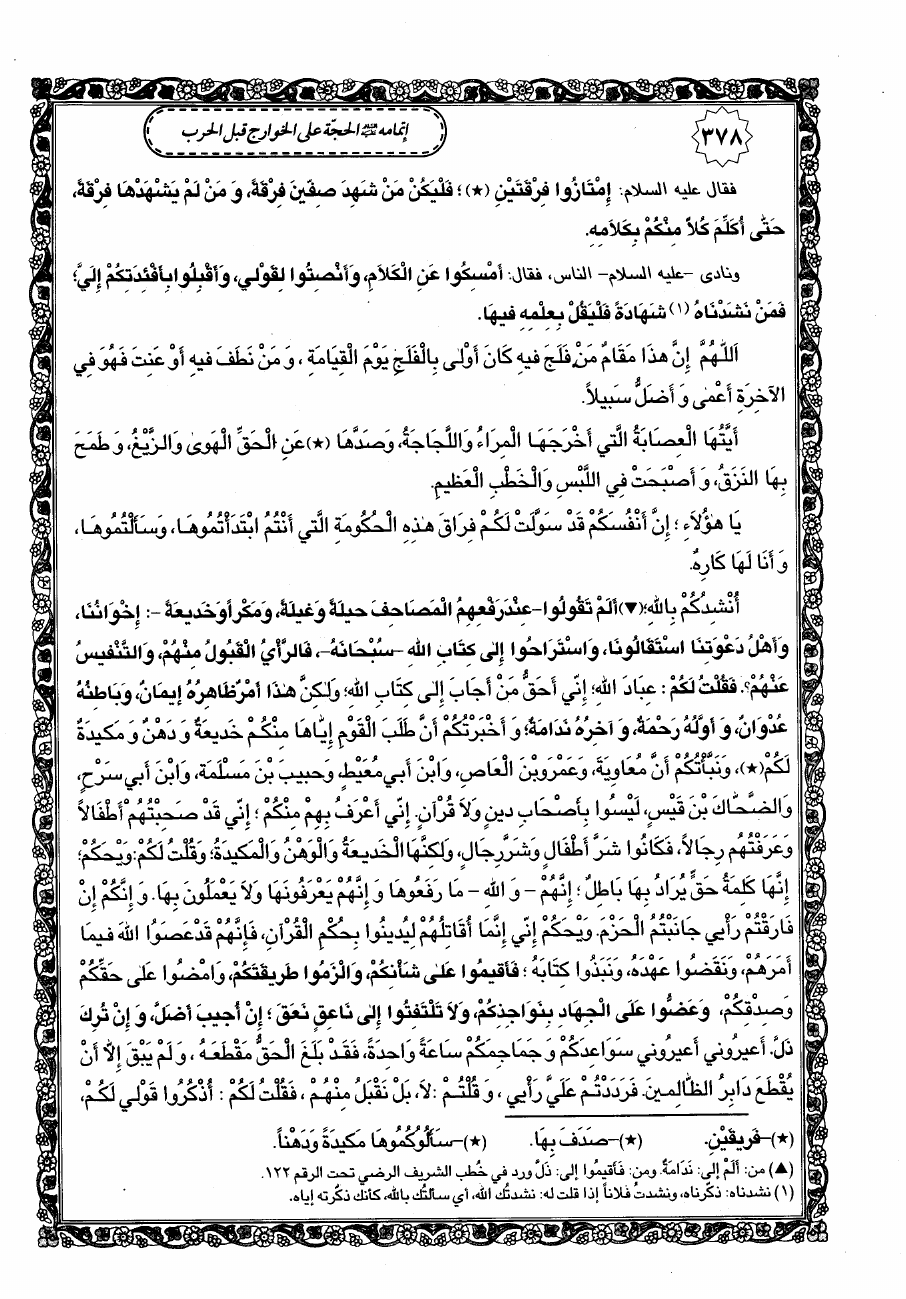 ٣٧٨
إتمامه عليه السلام الحجّة على الخوارج قبل الحرب
فقال عليه السلام: إِمْتَازُوا فِرْقَتَيْنِ (★)؛ فَلْيَكُنْ مَنْ شَهِدَ صِفّينَ فِرْقَةً، وَ مَنْ لَمْ يَشْهَدْهَا فِرْقَةً،
حَتّٰى أُكَلِّمَ كُلاًّ مِنْكُمْ بِكَلَامِهِ.
ونادى -عليه السلام- الناس، فقال: أَمْسِكُوا عَنِ الْكَلَامِ، وَأَنْصِتُوا لِقَوْلي، وَأَقْبِلُوا بِأَفْئِدَتِكُمْ إِلَيَّ؛
فَمَنْ نَشَدْنَاهُ (١) شَهَادَةً فَلْيَقُلْ بِعِلْمِهِ فيهَا.
اَللّٰهُمَّ إِنَّ هذَا مَقَامٌ مَنْ فَلَجَ فيهِ كَانَ أَوْلٰى بِالْفَلَجِ يَوْمَ الْقِيَامَةِ، وَ مَنْ نَطَفَ فيهِ أَوْ عَنِتَ فَهُوَ فِي
الآخِرَةِ أَعْمٰى وَ أَضَلُّ سَبيلاً.
أَيَّتُهَا الْعِصَابَةُ الَّتي أَخْرَجَهَا الْمِرَاءُ وَاللَّجَاجَةُ، وَصَدَّهَا (★) عَنِ الْحَقِّ الْهَوىٰ وَالزَّيْغُ، وَ طَمَحَ
بِهَا النَّزَقُ، وَ أَصْبَحَتْ فِي اللَّبْسِ وَالْخَطْبِ الْعَظيمِ.
يَا هؤُلَاءِ؛ إِنَّ أَنْفُسَكُمْ قَدْ سَوَّلَتْ لَكُمْ فِرَاقَ هٰذِهِ الْحُكُومَةِ الَّتي أَنْتُمُ ابْتَدَأْتُمُوهَا، وَسَأَلْتُمُوهَا،
وَ أَنَا لَهَا كَارِهٌ.
أُنْشِدُكُمْ بِاللهِ؛(▼) أَلَمْ تَقُولُوا-عِنْدَ رَفْعِهِمُ الْمَصَاحِفَ حيلَةً وَغيلَةً، وَمَكْراً وَخَديعَةً -: إِخْوَانُنَا،
وَأَهْلُ دَعْوَتِنَا اسْتَقَالُونَا، وَاسْتَرَاحُوا إِلٰى كِتَابِ اللهِ -سُبْحَانَهُ-، فَالرَّأْيُ الْقَبُولُ مِنْهُمْ، وَالتَّنْفيسُ
عَنْهُمْ؟. فَقُلْتُ لَكُمْ: عِبَادَ اللهِ؛ إِنّي أَحَقُّ مَنْ أَجَابَ إِلٰى كِتَابِ اللهِ؛ وَلٰكِنَّ هٰذَا أَمْرٌ ظَاهِرُهُ إيمَانٌ، وَبَاطِنُهُ
عُدْوَانٌ، وَ أَوَّلُهُ رَحْمَةٌ، وَ آخِرُهُ نَدَامَةٌ؛ وَ أَخْبَرْتُكُمْ أَنَّ طَلَبَ الْقَوْمِ إِيَّاهَا مِنْكُمْ خَديعَةٌ وَ دَهْنٌ وَ مَكيدَةٌ
لَكُمْ(★)، وَنَبَّأْتُكُمْ أَنَّ مُعَاوِيَةَ، وَعَمْرَو بْنَ الْعَاصِ، وَابْنَ أَبي مُعَيْطٍ، وَحَبيبَ بْنَ مَسْلَمَةَ، وَابْنَ أَبي سَرْحٍ،
وَالضَّحَّاكَ بْنَ قَيْسٍ، لَيْسُوا بِأَصْحَابِ دينٍ وَلَا قُرْآنٍ. إِنّي أَعْرَفُ بِهِمْ مِنْكُمْ؛ إِنّي قَدْ صَحِبْتُهُمْ أَطْفَالاً
وَعَرَفْتُهُمْ رِجَالاً، فَكَانُوا شَرَّ أَطْفَالٍ وَشَرَّ رِجَالٍ، وَلٰكِنَّهَا الْخَديعَةُ وَالْوَهْنُ وَالْمَكيدَةُ؛ وَقُلْتُ لَكُمْ: وَيْحَكُمْ؛
إِنَّهَا كَلِمَةُ حَقٍّ يُرَادُ بِهَا بَاطِلٌ؛ إِنَّهُمْ- وَ اللهِ - مَا رَفَعُوهَا وَ إِنَّهُمْ يَعْرِفُونَهَا وَلَا يَعْمَلُونَ بِهَا. وَ إِنَّكُمْ إِنْ
فَارَقْتُمْ رَأْيي جَانَبْتُمُ الْحَزْمَ. وَيْحَكُمْ إِنّي إِنَّمَا أُقَاتِلُهُمْ لِيُدينُوا بِحُكْمِ الْقُرْآنِ، فَإِنَّهُمْ قَدْ عَصَوُا اللهَ فيمَا
أَمَرَهُمْ، وَنَقَضُوا عَهْدَهُ، وَنَبَذُوا كِتَابَهُ؛ فَأَقيمُوا عَلٰى شَأْنِكُمْ، وَالْزَمُوا طَريقَتَكُمْ، وَامْضُوا عَلٰى حَقِّكُمْ
وَصِدْقِكُمْ، وَعَضُّوا عَلَى الْجِهَادِ بِنَوَاجِذِكُمْ، وَلَا تَلْتَفِتُوا إِلٰى نَاعِقٍ نَعَقَ؛ إِنْ أُجيبَ أَضَلَّ، وَ إِنْ تُرِكَ
ذَلَّ. أَعيرُوني أَعيرُوني سَوَاعِدَكُمْ وَ جَمَاجِمَكُمْ سَاعَةً وَاحِدَةً، فَقَدْ بَلَغَ الْحَقُّ مَقْطَعَهُ، وَ لَمْ يَبْقَ إِلاَّ أَنْ
يُقْطَعَ دَابِرُ الظَّالِمينَ. فَرَدَدْتُمْ عَلَيَّ رَأْيي، وَ قُلْتُمْ: لَا، بَلْ نَقْبَلُ مِنْهُمْ، فَقُلْتُ لَكُمْ: أُذْكُرُوا قَوْلي لَكُمْ،
(★)-فَريقَيْنِ. (★)-صَدَفَ بِهَا. (★)-سَأَلُوكُمُوهَا مَكيدَةً وَدَهْناً.
(▲) من: أَلَمْ إلى: نَدَامَةٌ. ومن: فَأَقيمُوا إلى: ذَلَّ ورد في خُطب الشريف الرضي تحت الرقم ١٢٢.
(١) نشدناه: ذكّرناه، ونشدتُ فلاناً إذا قلت له: نشدتك الله، أي سألتُك بالله، كأنك ذكّرته إياه.